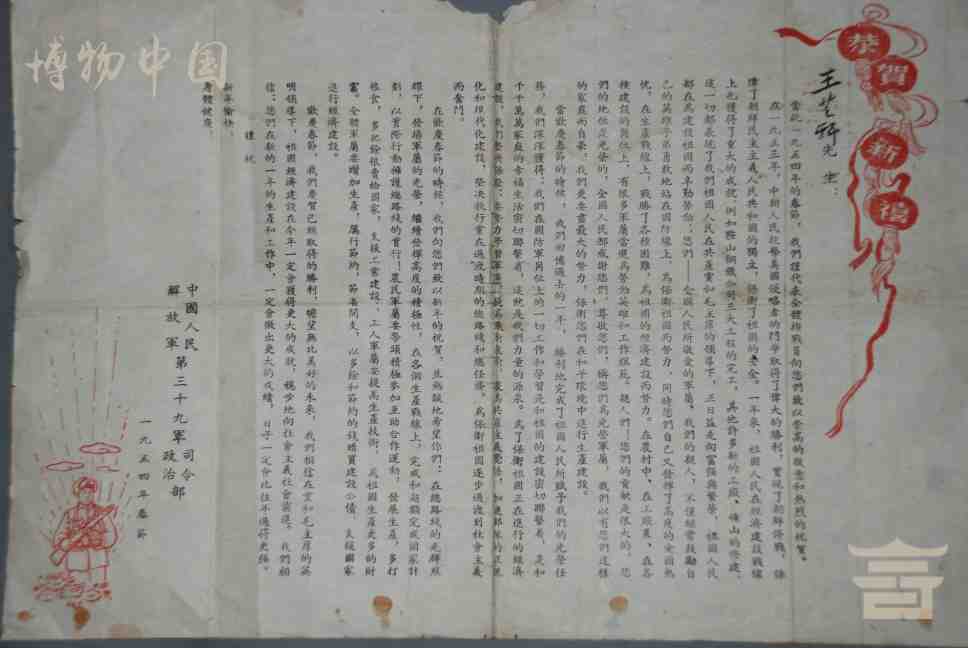 博物中国
恭賀新禧
先生：
當此一九五四年的春節，我們謹代表全體指戰員向您們致以崇高的敬意和熱烈的祝賀。
在一九五三年，中朝人民抗擊美國侵略者的鬥爭取得了偉大的勝利，實現了朝鮮停戰，保
障了朝鮮民主主義人民共和國的獨立，保衛了祖國的安全。一年來，祖國人民在經濟建設戰線
上也獲得了重大的成就，例如鞍山鋼鐵公司三大工程的完工，其他許多新的工廠、礦山的修建，
這一切都表現了我們祖國人民在共產黨和毛主席的領導下，正日益走向富強與繁榮。祖國人民
都在為建設祖國而辛勤勞動；您們——全國人民所敬愛的軍屬，我們的親人，不僅經常鼓勵自
己的英雄子弟勇敢地站在國防線上，為保衛祖國而努力，同時您們自己又發揮了高度的愛國熱
忱，在生產戰線上，戰勝了各種困難，為祖國的經濟建設而努力。在農村中、在工廠裏、在各
種建設的崗位上，有很多軍屬當選為勞動英雄和工作模範。親人們，您們的貢獻是很大的，您
們的地位是光榮的，全國人民都感謝您們，尊敬您們，稱您們為光榮軍屬，我們以有您們這樣
的家庭而自豪。我們更要盡最大的努力，保衛您們在和平環境中進行生產建設。
當歡慶春節的時候，我們回憶過去的一年，勝利地完成了祖國人民所賦予我們的光榮任
務，我們深深獲得：我們在國防軍崗位上的一切工作和學習是和祖國的建設密切聯繫着，是和
千千萬萬家庭的幸福生活密切聯繫着，這就是我們力量的源泉。為了保衛祖國正在進行的經濟
化和現代化建設，堅決執行黨在過渡時期的總路線和總任務，為保衛祖國逐步過渡到社會主義
而奮鬥。
在歡慶春節的時候，我們向您們致以新年的祝賀，並熱誠地希望你們：在總路線的光輝照
耀下，發揚軍屬的光榮，繼續發揮高度的積極性，在各個生產戰線上，完成和超額完成國家計
劃，以實際行動擁護總路線的實行！農民軍屬要帶頭積極參加互助合作運動，發展生產，多打
糧食，多把餘糧賣給國家，支援工業建設，工人軍屬要提高生產技術，為祖國生產更多的財
富。全體軍屬要增加生產，厲行節約，節省開支，以多餘和節約的錢購買建設公債，支援國家
進行經濟建設。
歡慶春節，我們慶賀已經取得的勝利，瞻望無比美好的未來，我們相信在黨和毛主席的英
明領導下，祖國經濟建設在今年一定會獲得更大的成就，穩步地向社會主義社會前進。我們相
信：您們在新的一年的生產和工作中，一定會做出更大的成績，日子一定會比往年過得更強。
謹祝
新年愉快
身體健康。
中國人民解放軍第三十九軍司令部政治部
一九五四年春節